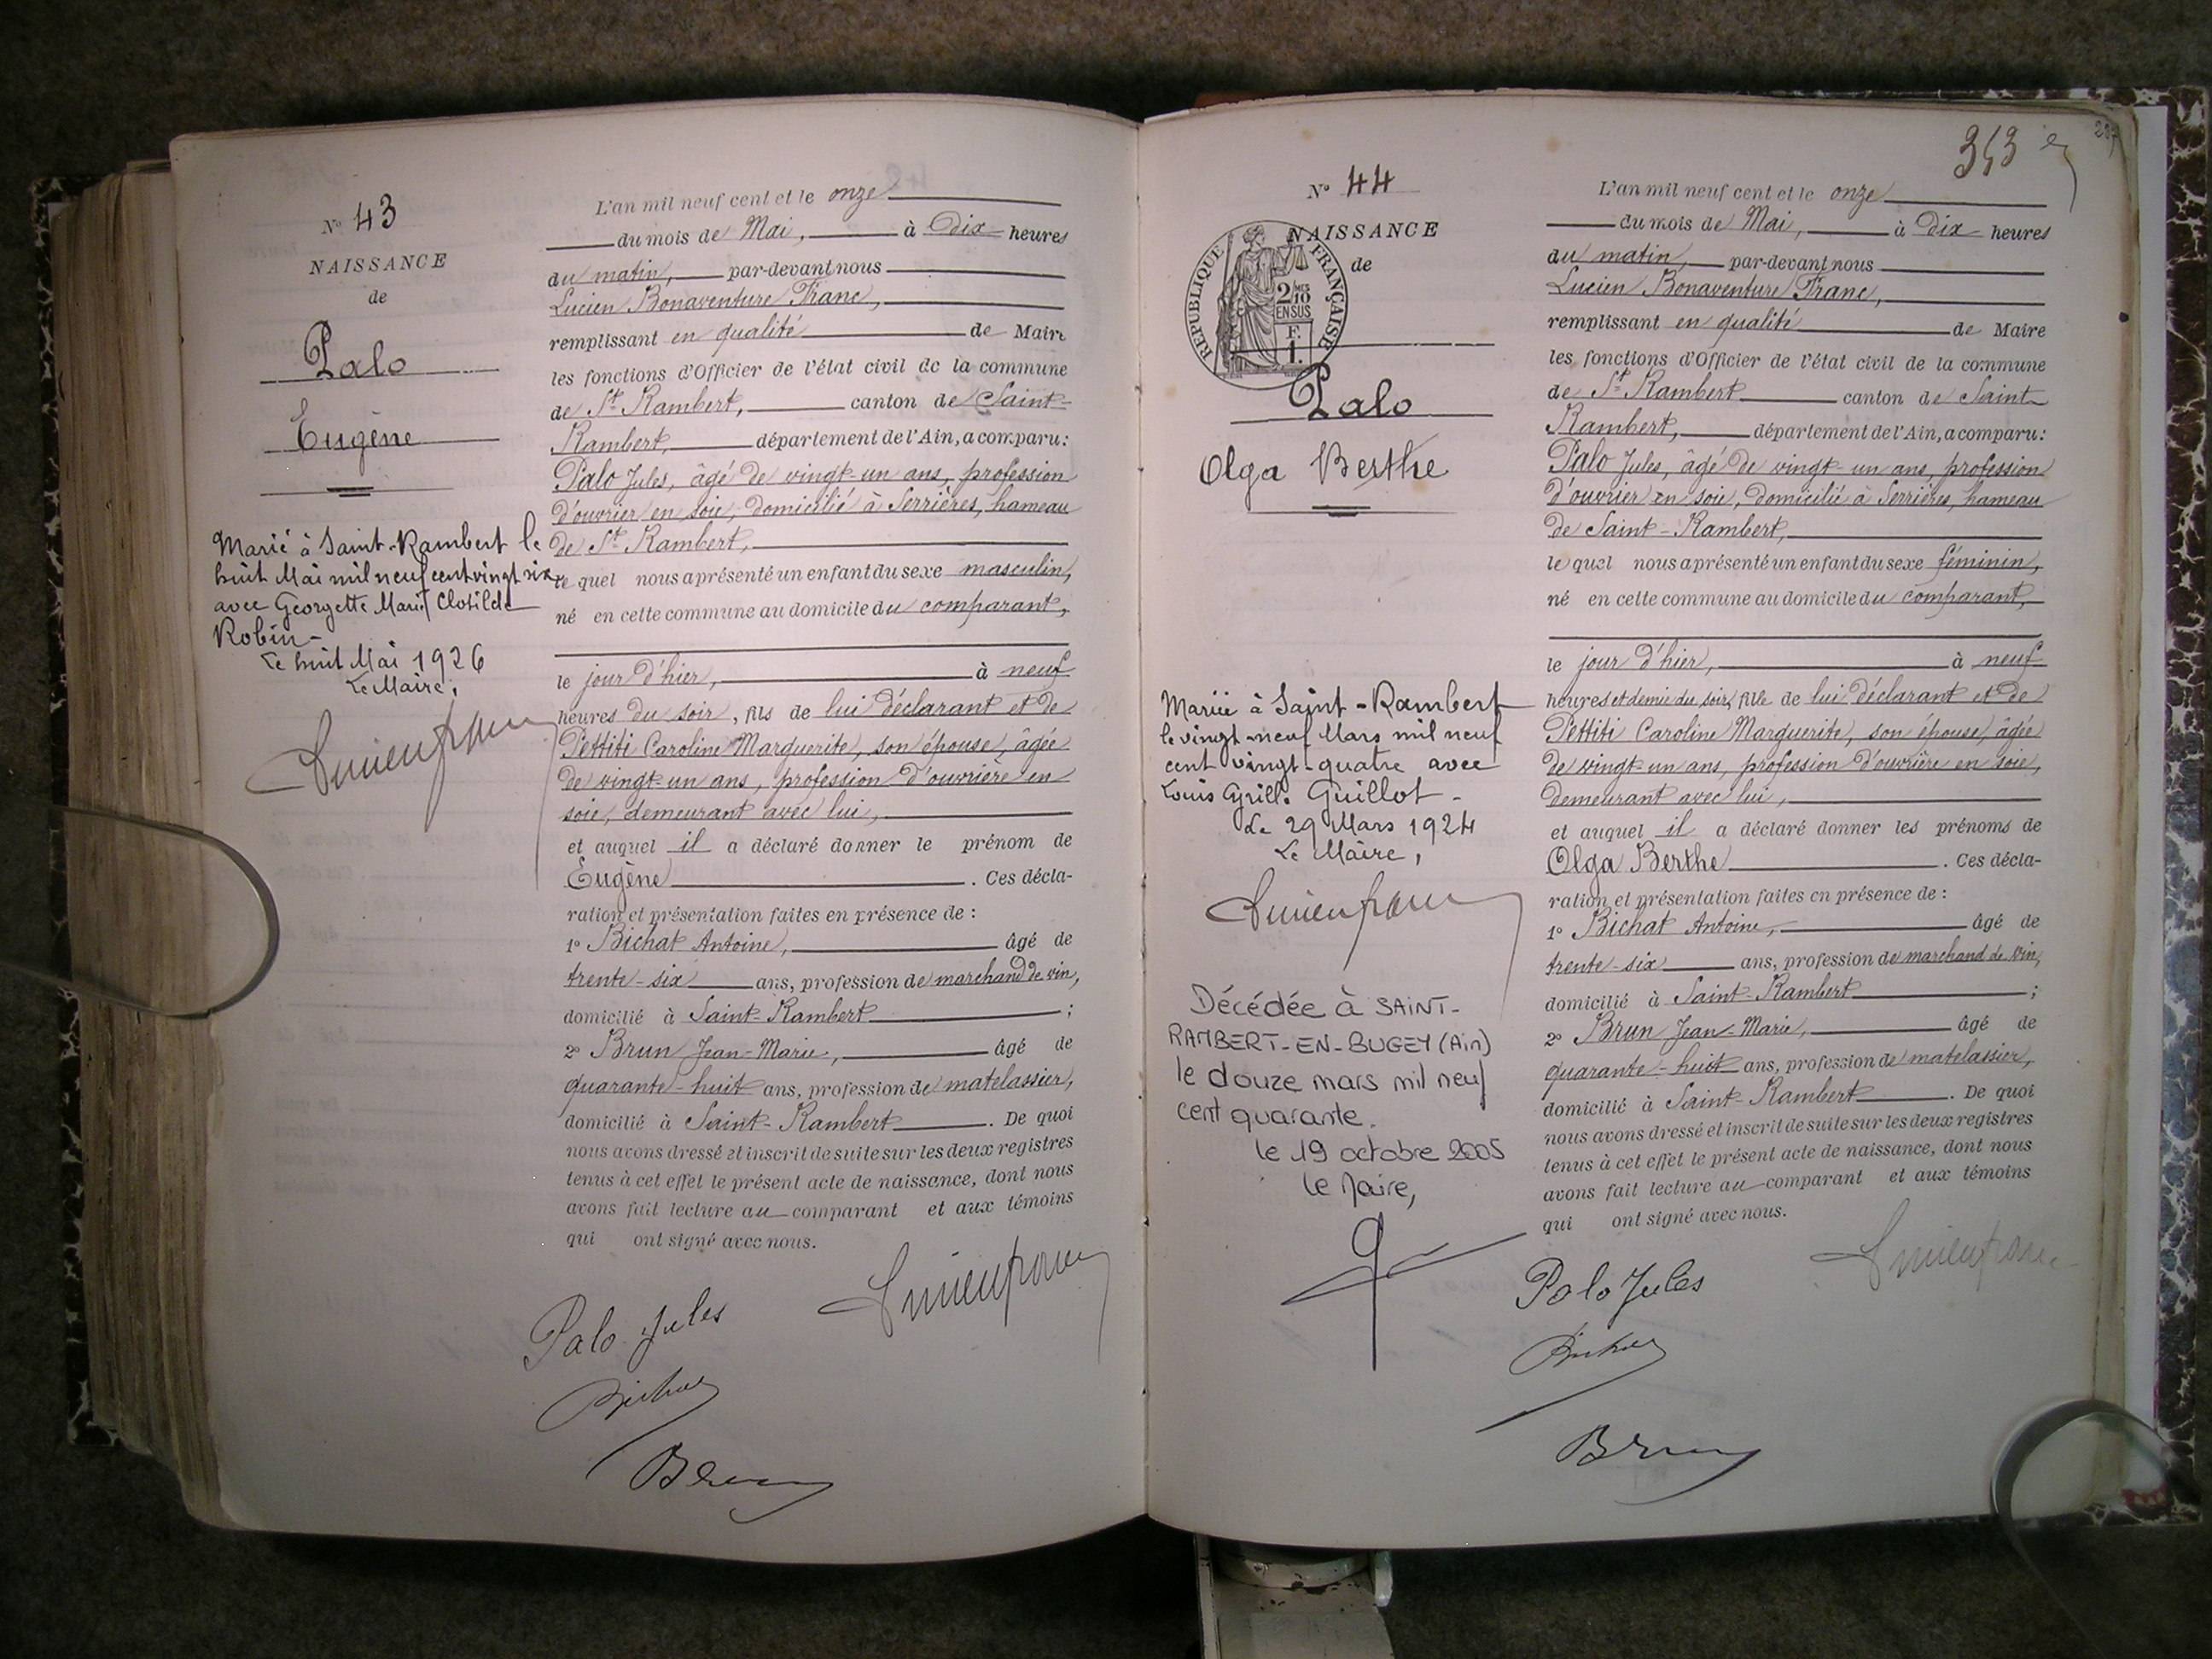 N° 43
NAISSANCE
de
Palo
Eugène
Marié à Saint-Rambert le
huit Mai mil neuf cent vingt six
avec Georgette Marie Clotilde
Robin -
Le huit Mai 1926
Le Maire,
L'an mil neuf cent et le onze
du mois de Mai, à Dix heures
du matin, par-devant nous
Lucien Bonaventure Franc,
remplissant en qualité de Maire
les fonctions d'Officier de l'état civil de la commune
de St Rambert, canton de Saint-
Rambert, département de l'Ain, a comparu:
Palo Jules, âgé de vingt-un ans, profession
d'ouvrier en soie, domicilié à Serrières, hameau
de St Rambert,
le quel nous a présenté un enfant du sexe masculin,
né en cette commune au domicile du comparant,
le jour d'hier, à neuf
heures du soir, fils de lui déclarant et de
Pettiti Caroline Marguerite, son épouse, âgée
de vingt-un ans, profession d'ouvrière en
soie, demeurant avec lui,
et auquel il a déclaré donner le prénom de
Eugène. Ces décla-
ration et présentation faites en présence de :
1° Bichat Antoine, âgé de
trente-six ans, profession de marchand de vin,
domicilié à Saint-Rambert ;
2° Brun Jean-Marie, âgé de
quarante-huit ans, profession de matelassier,
domicilié à Saint-Rambert. De quoi
nous avons dressé et inscrit de suite sur les deux registres
tenus à cet effet le présent acte de naissance, dont nous
avons fait lecture au comparant et aux témoins
qui ont signé avec nous.
Palo Jules
Bichat
Brun
343
N° 44
NAISSANCE
de
REPUBLIQUE FRANÇAISE
2/10 MES
EN SUS
F.
1.
Palo
Olga Berthe
Mariée à Saint-Rambert
le vingt-neuf Mars mil neuf
cent vingt-quatre avec
Louis Cyrille Guillot -
Le 29 Mars 1924
Le Maire,
Décédée à SAINT-
RAMBERT-EN-BUGEY (Ain)
le douze mars mil neuf
cent quarante.
le 19 octobre 2005
le Maire,
L'an mil neuf cent et le onze
du mois de Mai, à Dix heures
du matin, par-devant nous
Lucien Bonaventure Franc,
remplissant en qualité de Maire
les fonctions d'Officier de l'état civil de la commune
de St Rambert canton de Saint-
Rambert, département de l'Ain, a comparu:
Palo Jules, âgé de vingt-un ans, profession
d'ouvrier en soie, domicilié à Serrières, hameau
de Saint-Rambert,
le quel nous a présenté un enfant du sexe féminin,
né en cette commune au domicile du comparant,
le jour d'hier, à neuf
heures et demie du soir, fille de lui déclarant et de
Pettiti Caroline Marguerite, son épouse, âgée
de vingt-un ans, profession d'ouvrière en soie,
demeurant avec lui,
et auquel il a déclaré donner les prénoms de
Olga Berthe. Ces décla-
ration et présentation faites en présence de :
1° Bichat Antoine, âgé de
trente-six ans, profession de marchand de vin,
domicilié à Saint-Rambert ;
2° Brun Jean-Marie, âgé de
quarante-huit ans, profession de matelassier,
domicilié à Saint-Rambert. De quoi
nous avons dressé et inscrit de suite sur les deux registres
tenus à cet effet le présent acte de naissance, dont nous
avons fait lecture au comparant et aux témoins
qui ont signé avec nous.
Palo Jules
Bichat
Brun